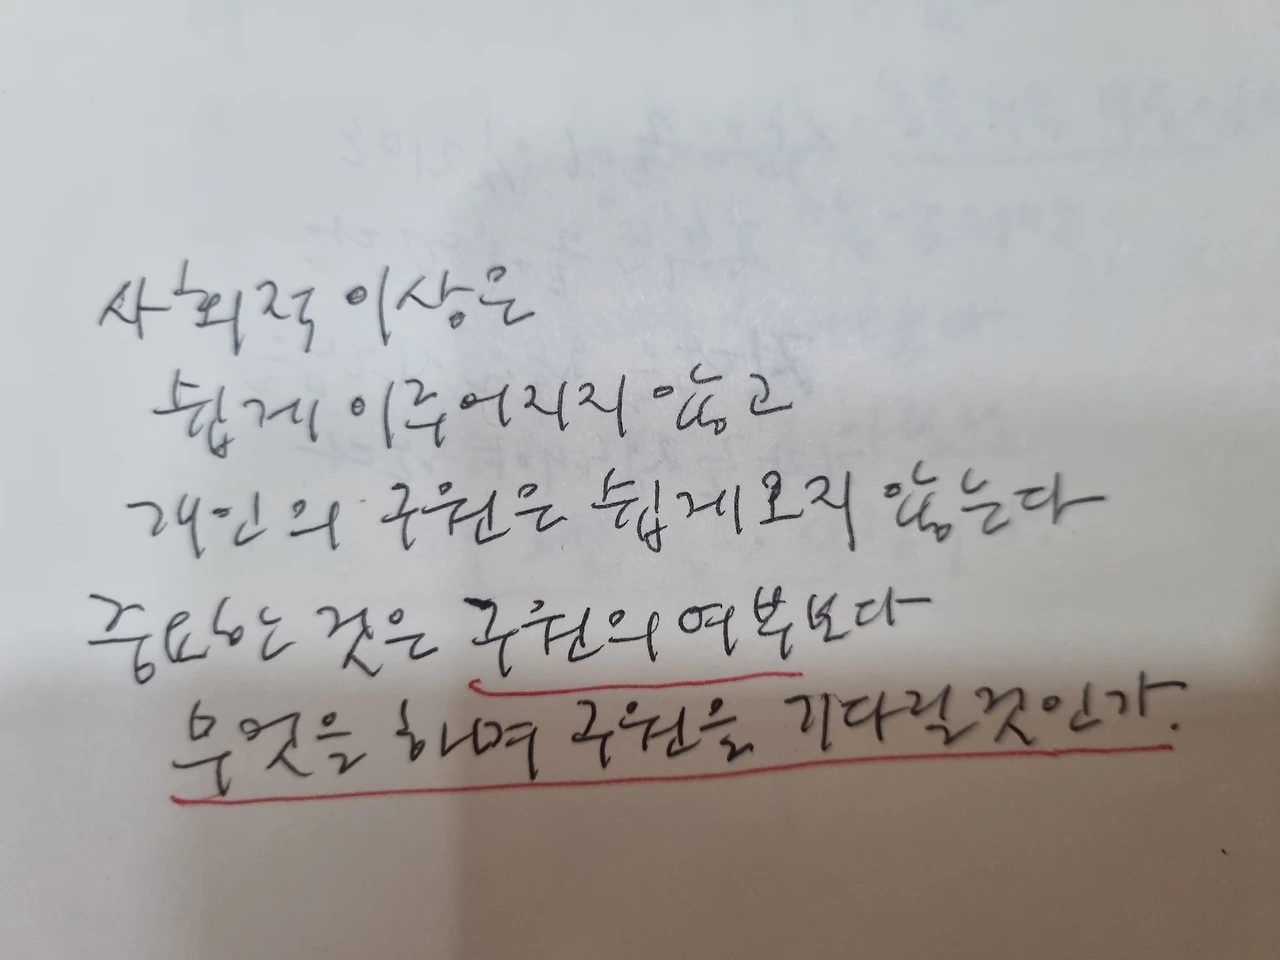 사회적 이상은
쉽게 이루어지지 않고
개인의 구원은 쉽게 오지 않는다
중요한 것은 구원의 여부보다
무엇을 하며 구원을 기다릴 것인가.